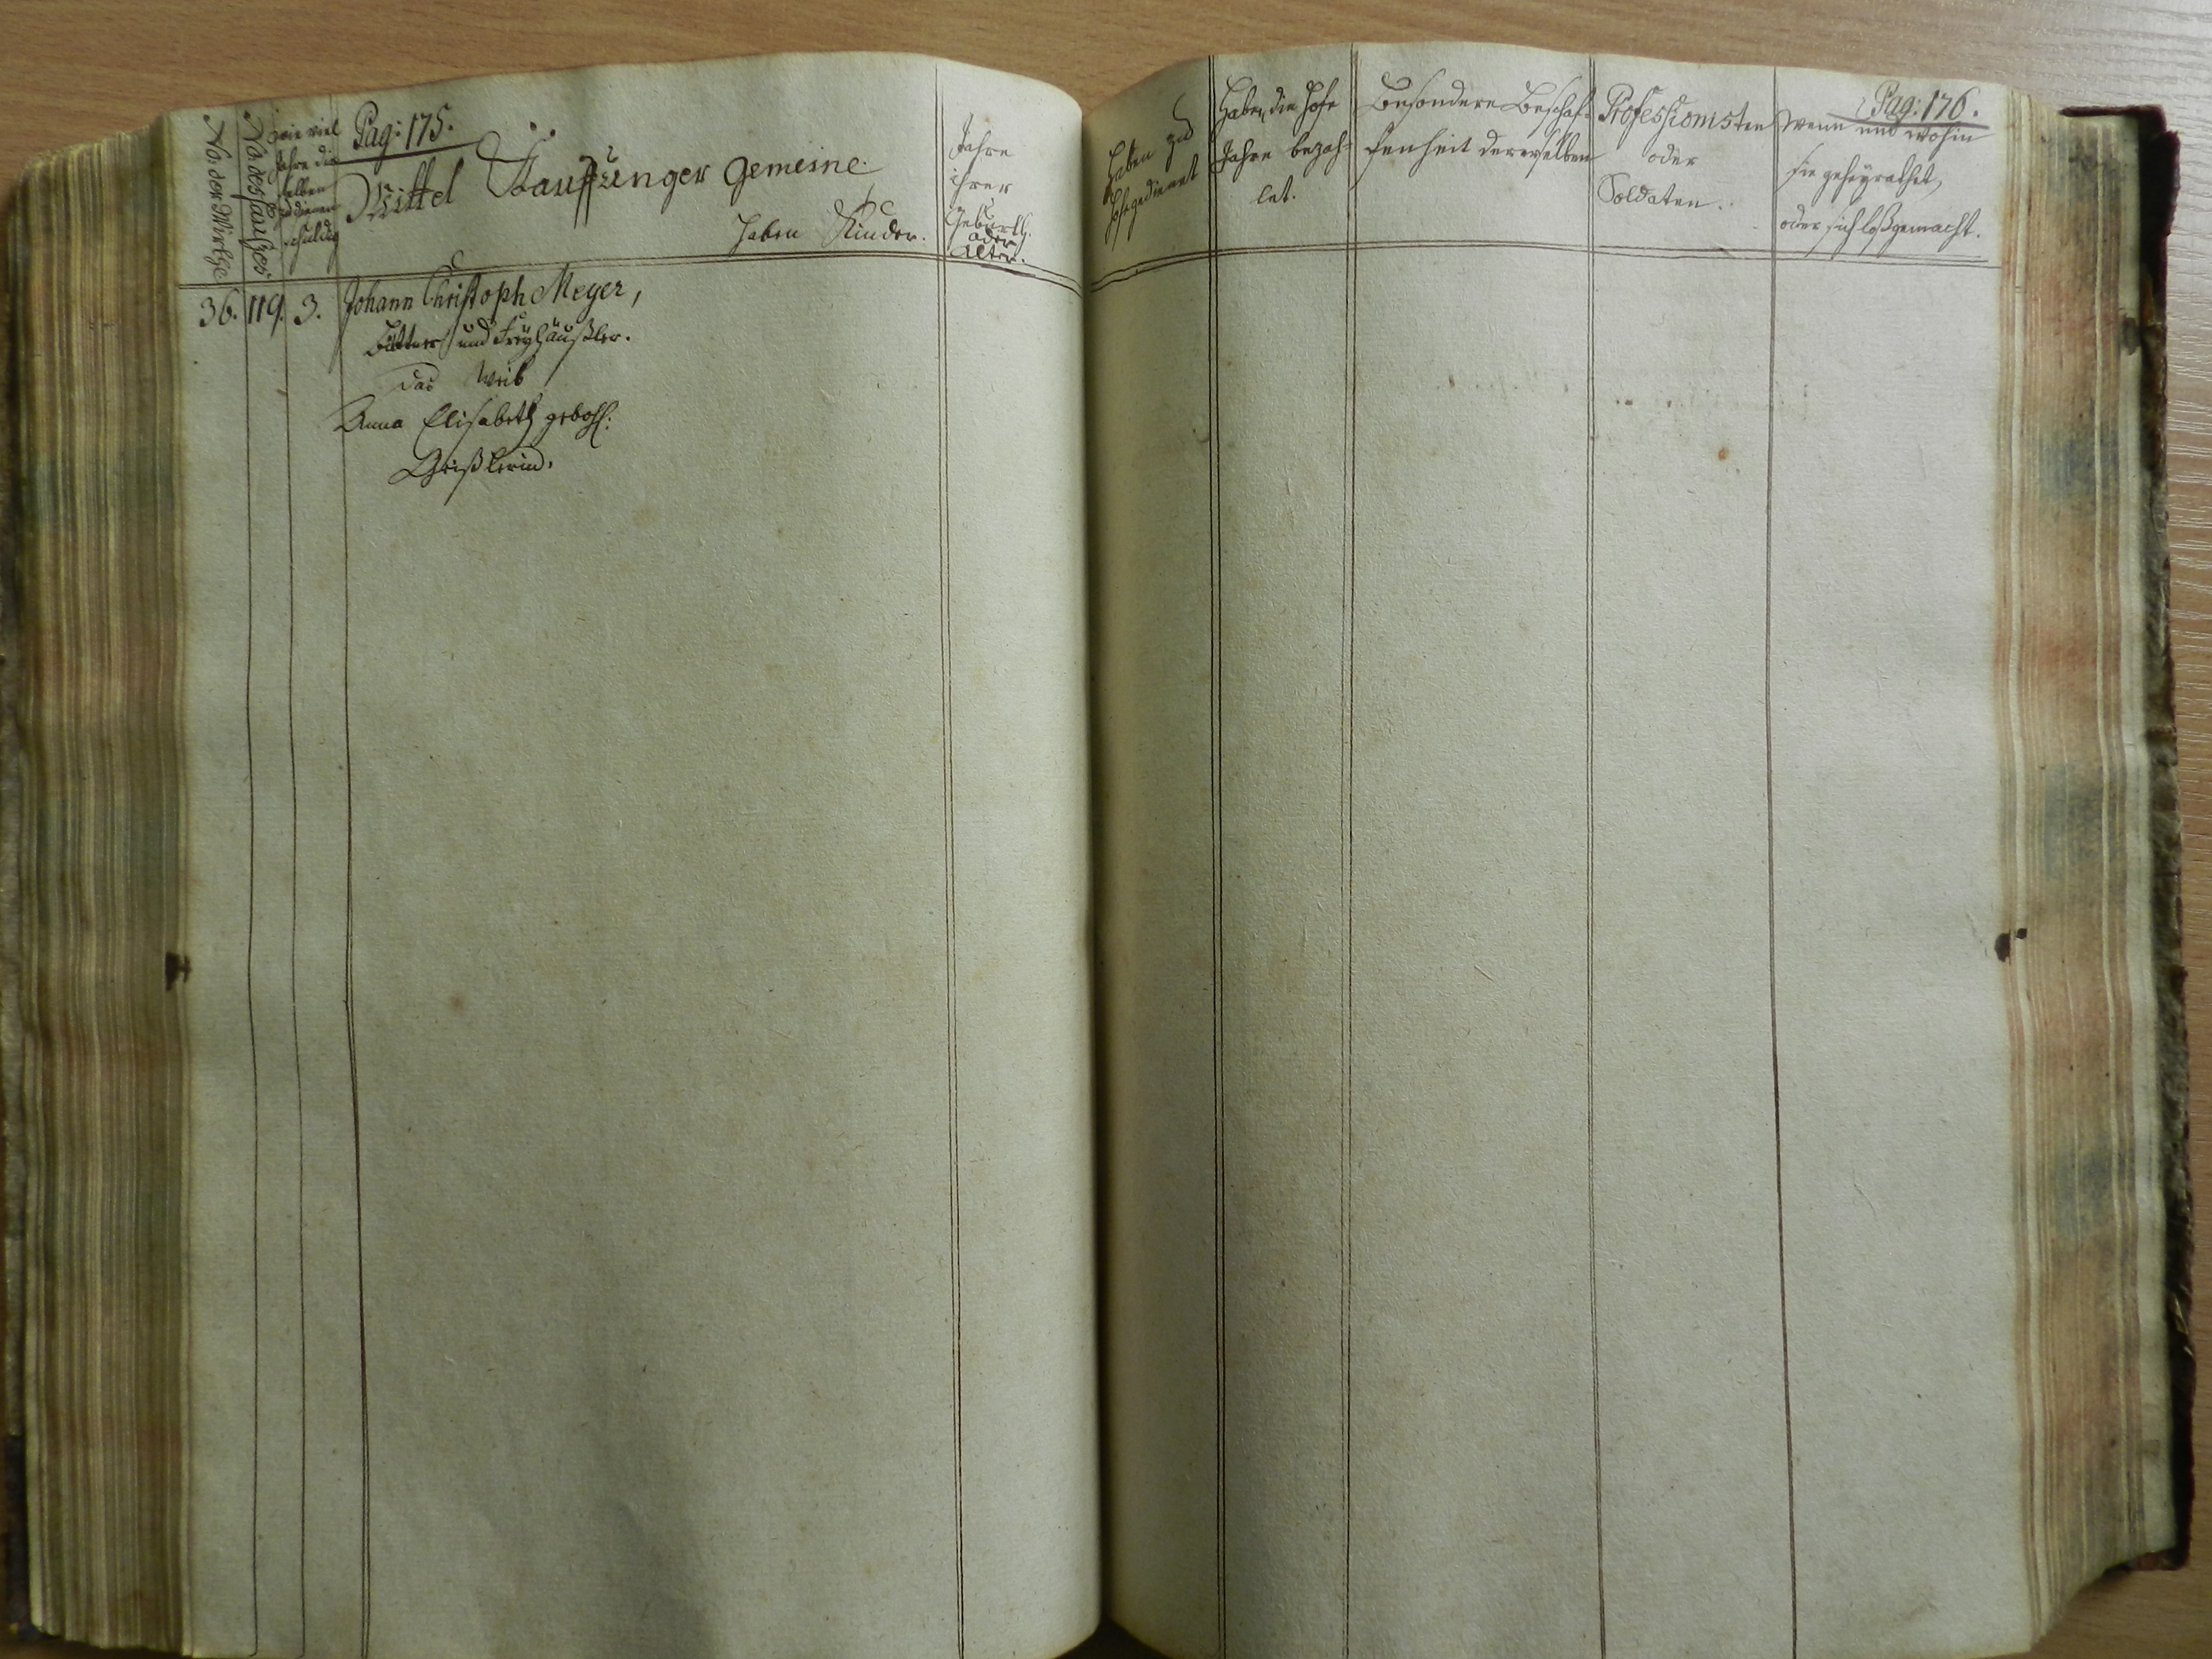 Pag: 175.
No: der Wirthe
No: des Haußes
wie viel
Jahre die
selben
zu dienen
schuldig
Mittel Kauffunger Gemeine.
haben Kinder.
Jahre
ihrer
Geburth.
oder
Alter.
36. 119. 3. Johann Christoph Meyer,
Büttner und Freyhäußler.
das Weib
Anna Elisabeth gebohr:
Geißlerin.
Pag: 176.
Haben zu
Hofe gedienet
Haben die Hofe
Jahre bezah-
let.
Besondere Beschaf-
fenheit dererselben
Professionisten
oder
Soldaten.
Wenn und wohin
sie geheyrathet,
oder sich loßgemacht.